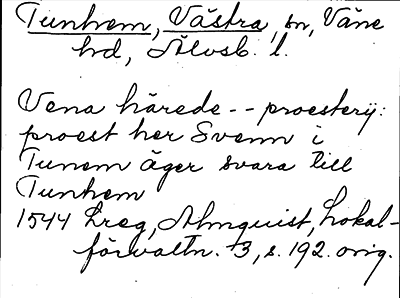 Tunhem, Västra, sn, Väne
hd, Älvsb. l.
Vena härede -- proesterij:
proest her Svenn i
Tunem äger svara till
Tunhem
1544 Lreg, Almquist, Lokal-
förvaltn. 3, s. 192. orig.